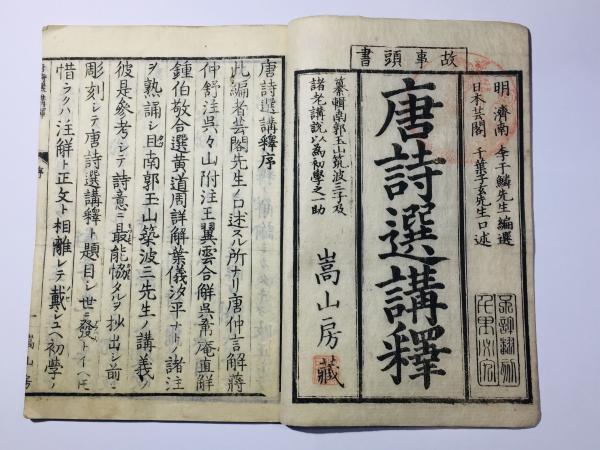 故事頭書
明 濟南 李于鱗先生編選
日本芸閣 千葉子玄先生口述
唐詩選講釋
纂輯南郭玉山筑波三子及
諸老講説以為初學之一助
嵩山房
藏
唐詩選講釋序
此編者芸閣先生ノ口述スル所ナリ唐仲言解蔣
仲舒注呉々山附注王翼雲合解呉旉庵直解
鍾伯敬合選黄道周詳解葉儀汐平ナトノ諸注
ヲ熟誦シ且南郭玉山築波三先生ノ講義ヲ
彼是參考シテ詩意ニ最能恊タルヲ抄出シ前ニ
彫刻シテ唐詩選講釋ト題目シ世ニ發トイヘ𪜈
惜ラクハ注解ト正文ト相離レテ載シユヘ初學ノ
唐詩選講釋
序
一
嵩山房